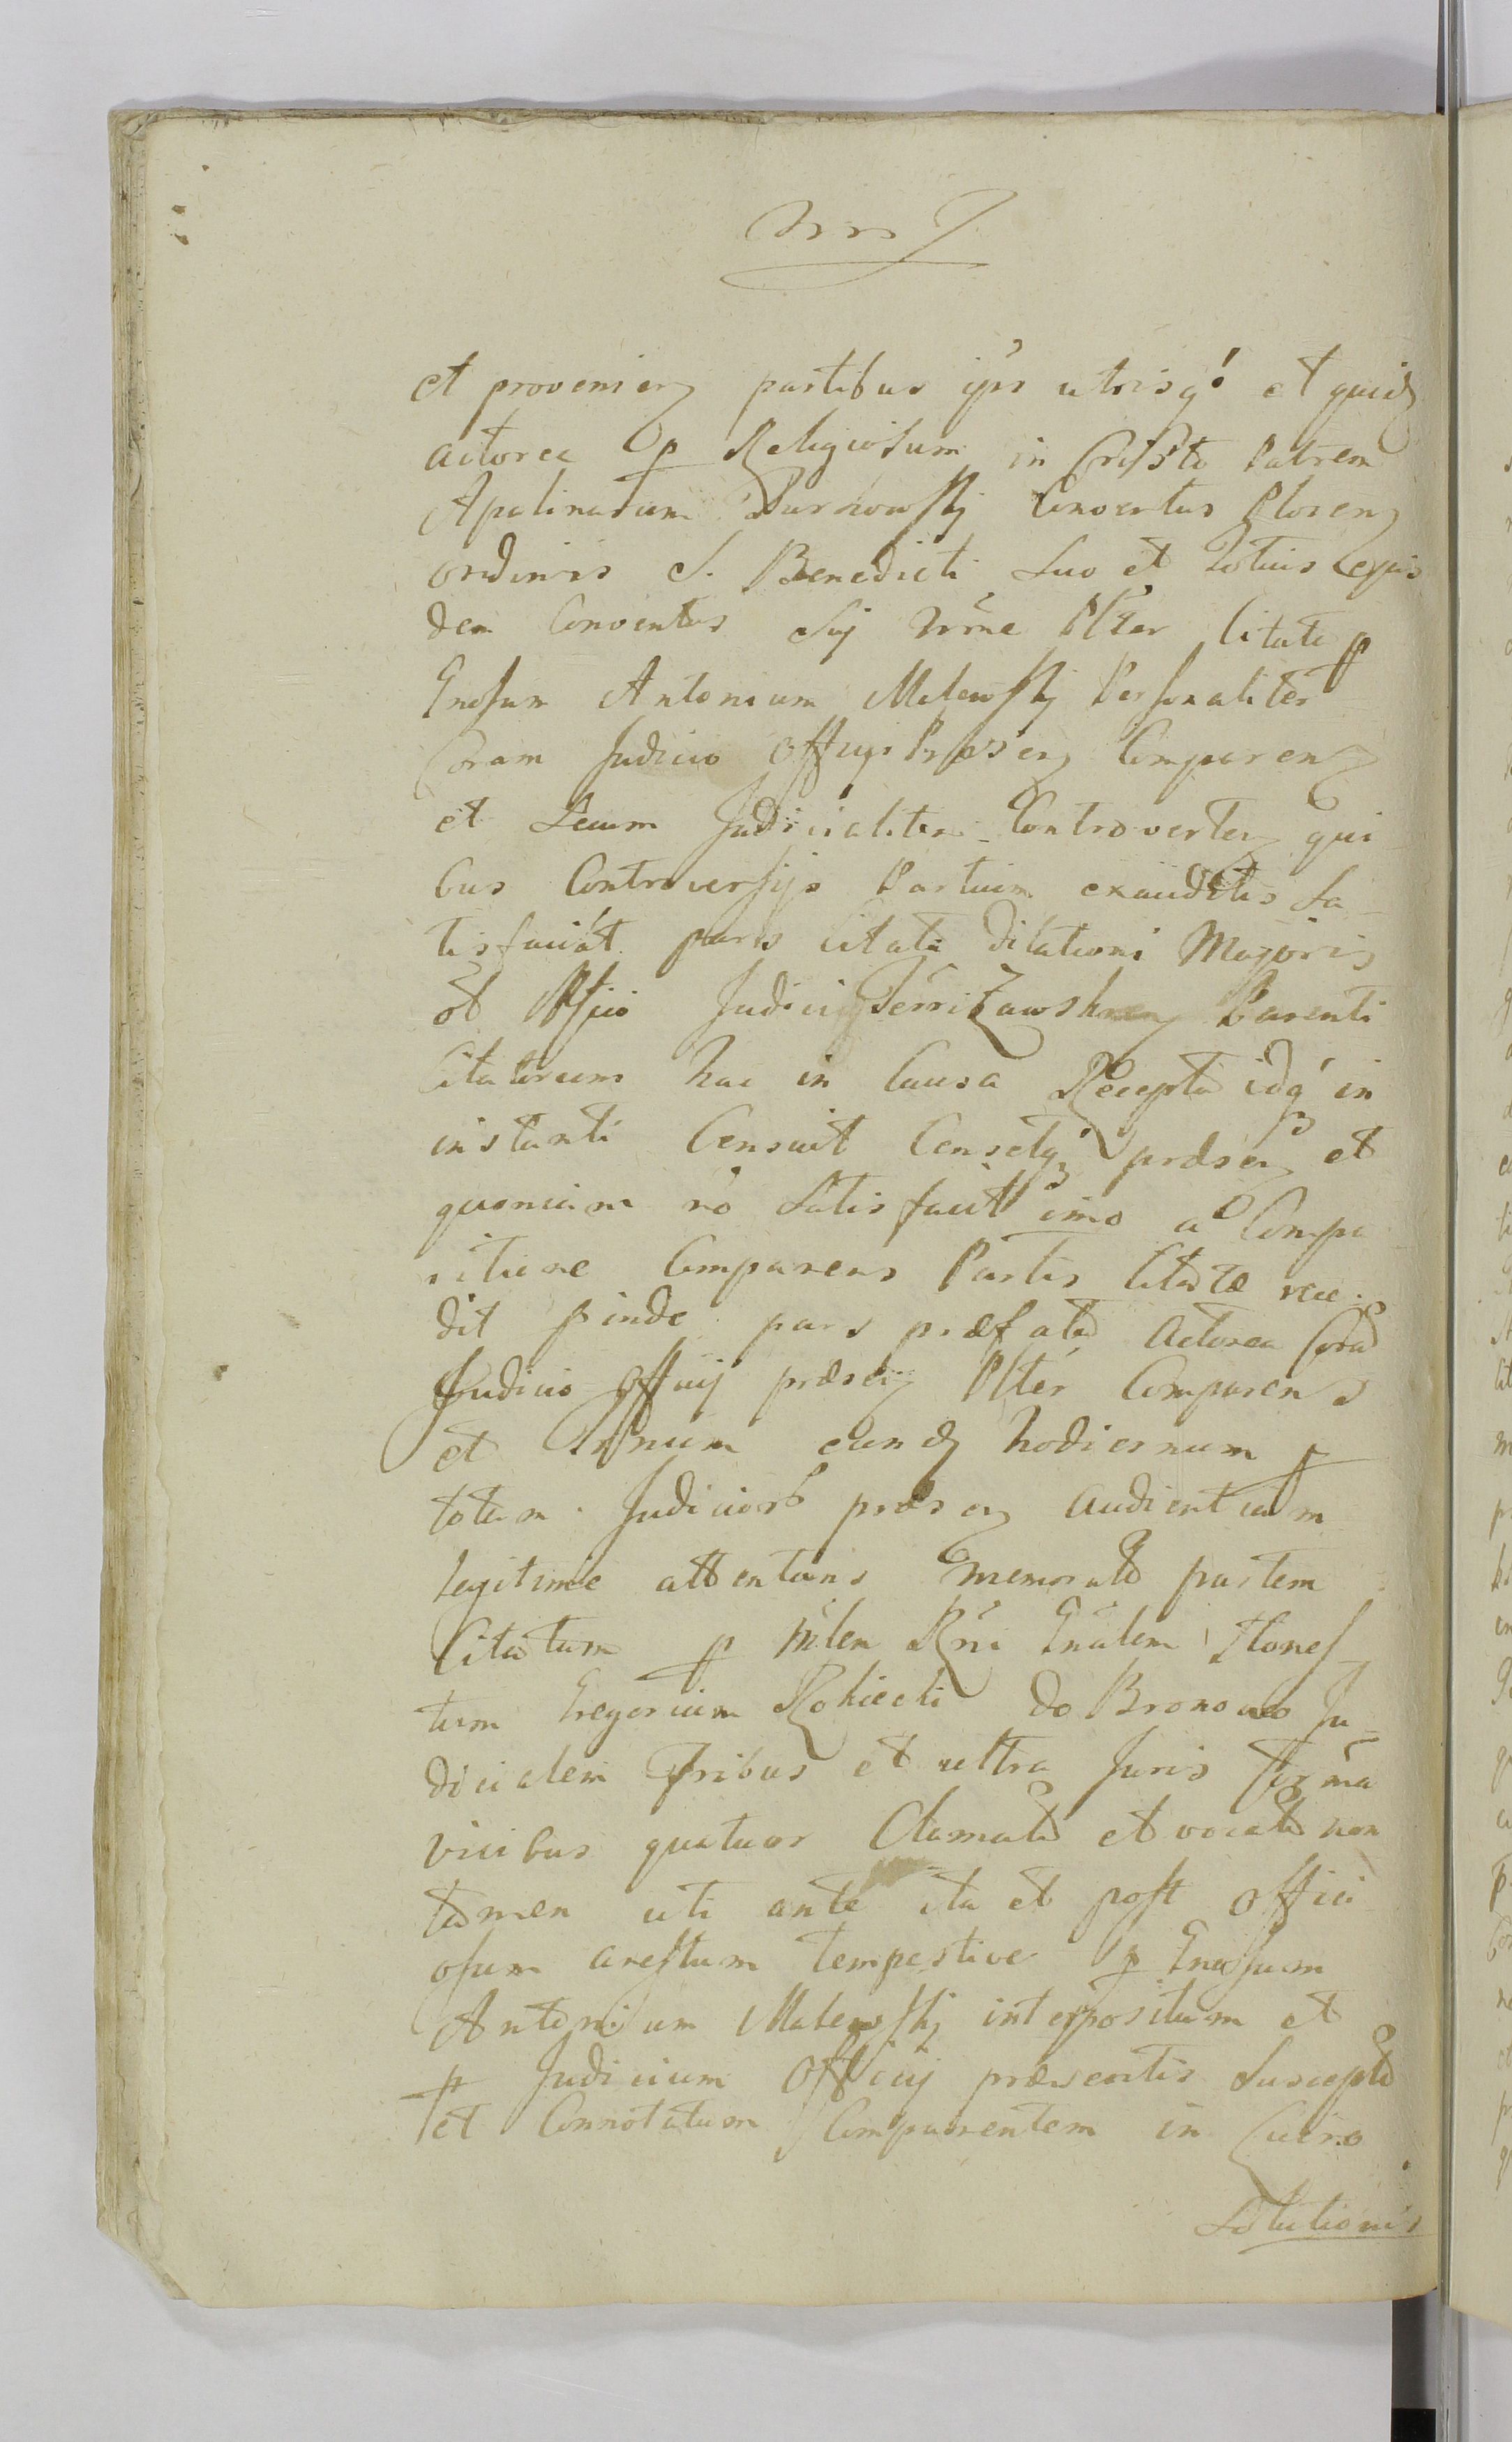 et provenien partibus ipis utrisq' et quid
actorea p Religiosum in Cristo Patrem
Apolinarum Conventus Plocen
ordinis S. Benedicti Suo et Totius ejus
dem Conventus Sui nme Plter Citata p
Gnosum Antonium Malewskj Personaliter
Coram Judicio Officii Præsen Comparen
et Secum Judicialiter Controverten qui
bus Controversijs Partium exauditis Sa
tisfaciat pars citata dilationi Majoris
ob Judicij Terri Zawskren Parenti
Citatorum hac in Causa Recepta idq' in
instanti Censuit Censetq præsen et
quoniam nō Satisfacit imo a Compa
ritione Comparens Partis Citatæ rece
dit pinde pars præfata Actorea Cora
Judicio Officij præsen Plter Comparens
et Trnum eund hodiernum p
totam Judiciorb præsen audientiam
legitime attentans memorata partem
Citatam p Mlem Rni Gnalem Hones
tum Gregorium Rokiecki do Bronowo Ju
dicialem Tribus et ultra Juris formā
vicibus quatuor Clamata et vocata non
tamen uti ante ita et post offici
osum arestum tempestive p Gnosum
Antonium Malewskj interpositum et
p Judicium Officij præsentis Suscepta
et Connotatum Comparentem in Cucro
Solutionis